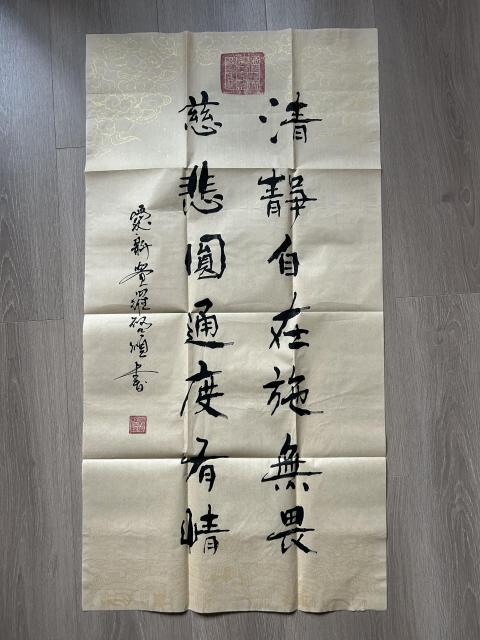 清靜自在施無畏
慈悲圓通度有情
愛新覺羅啓頌書